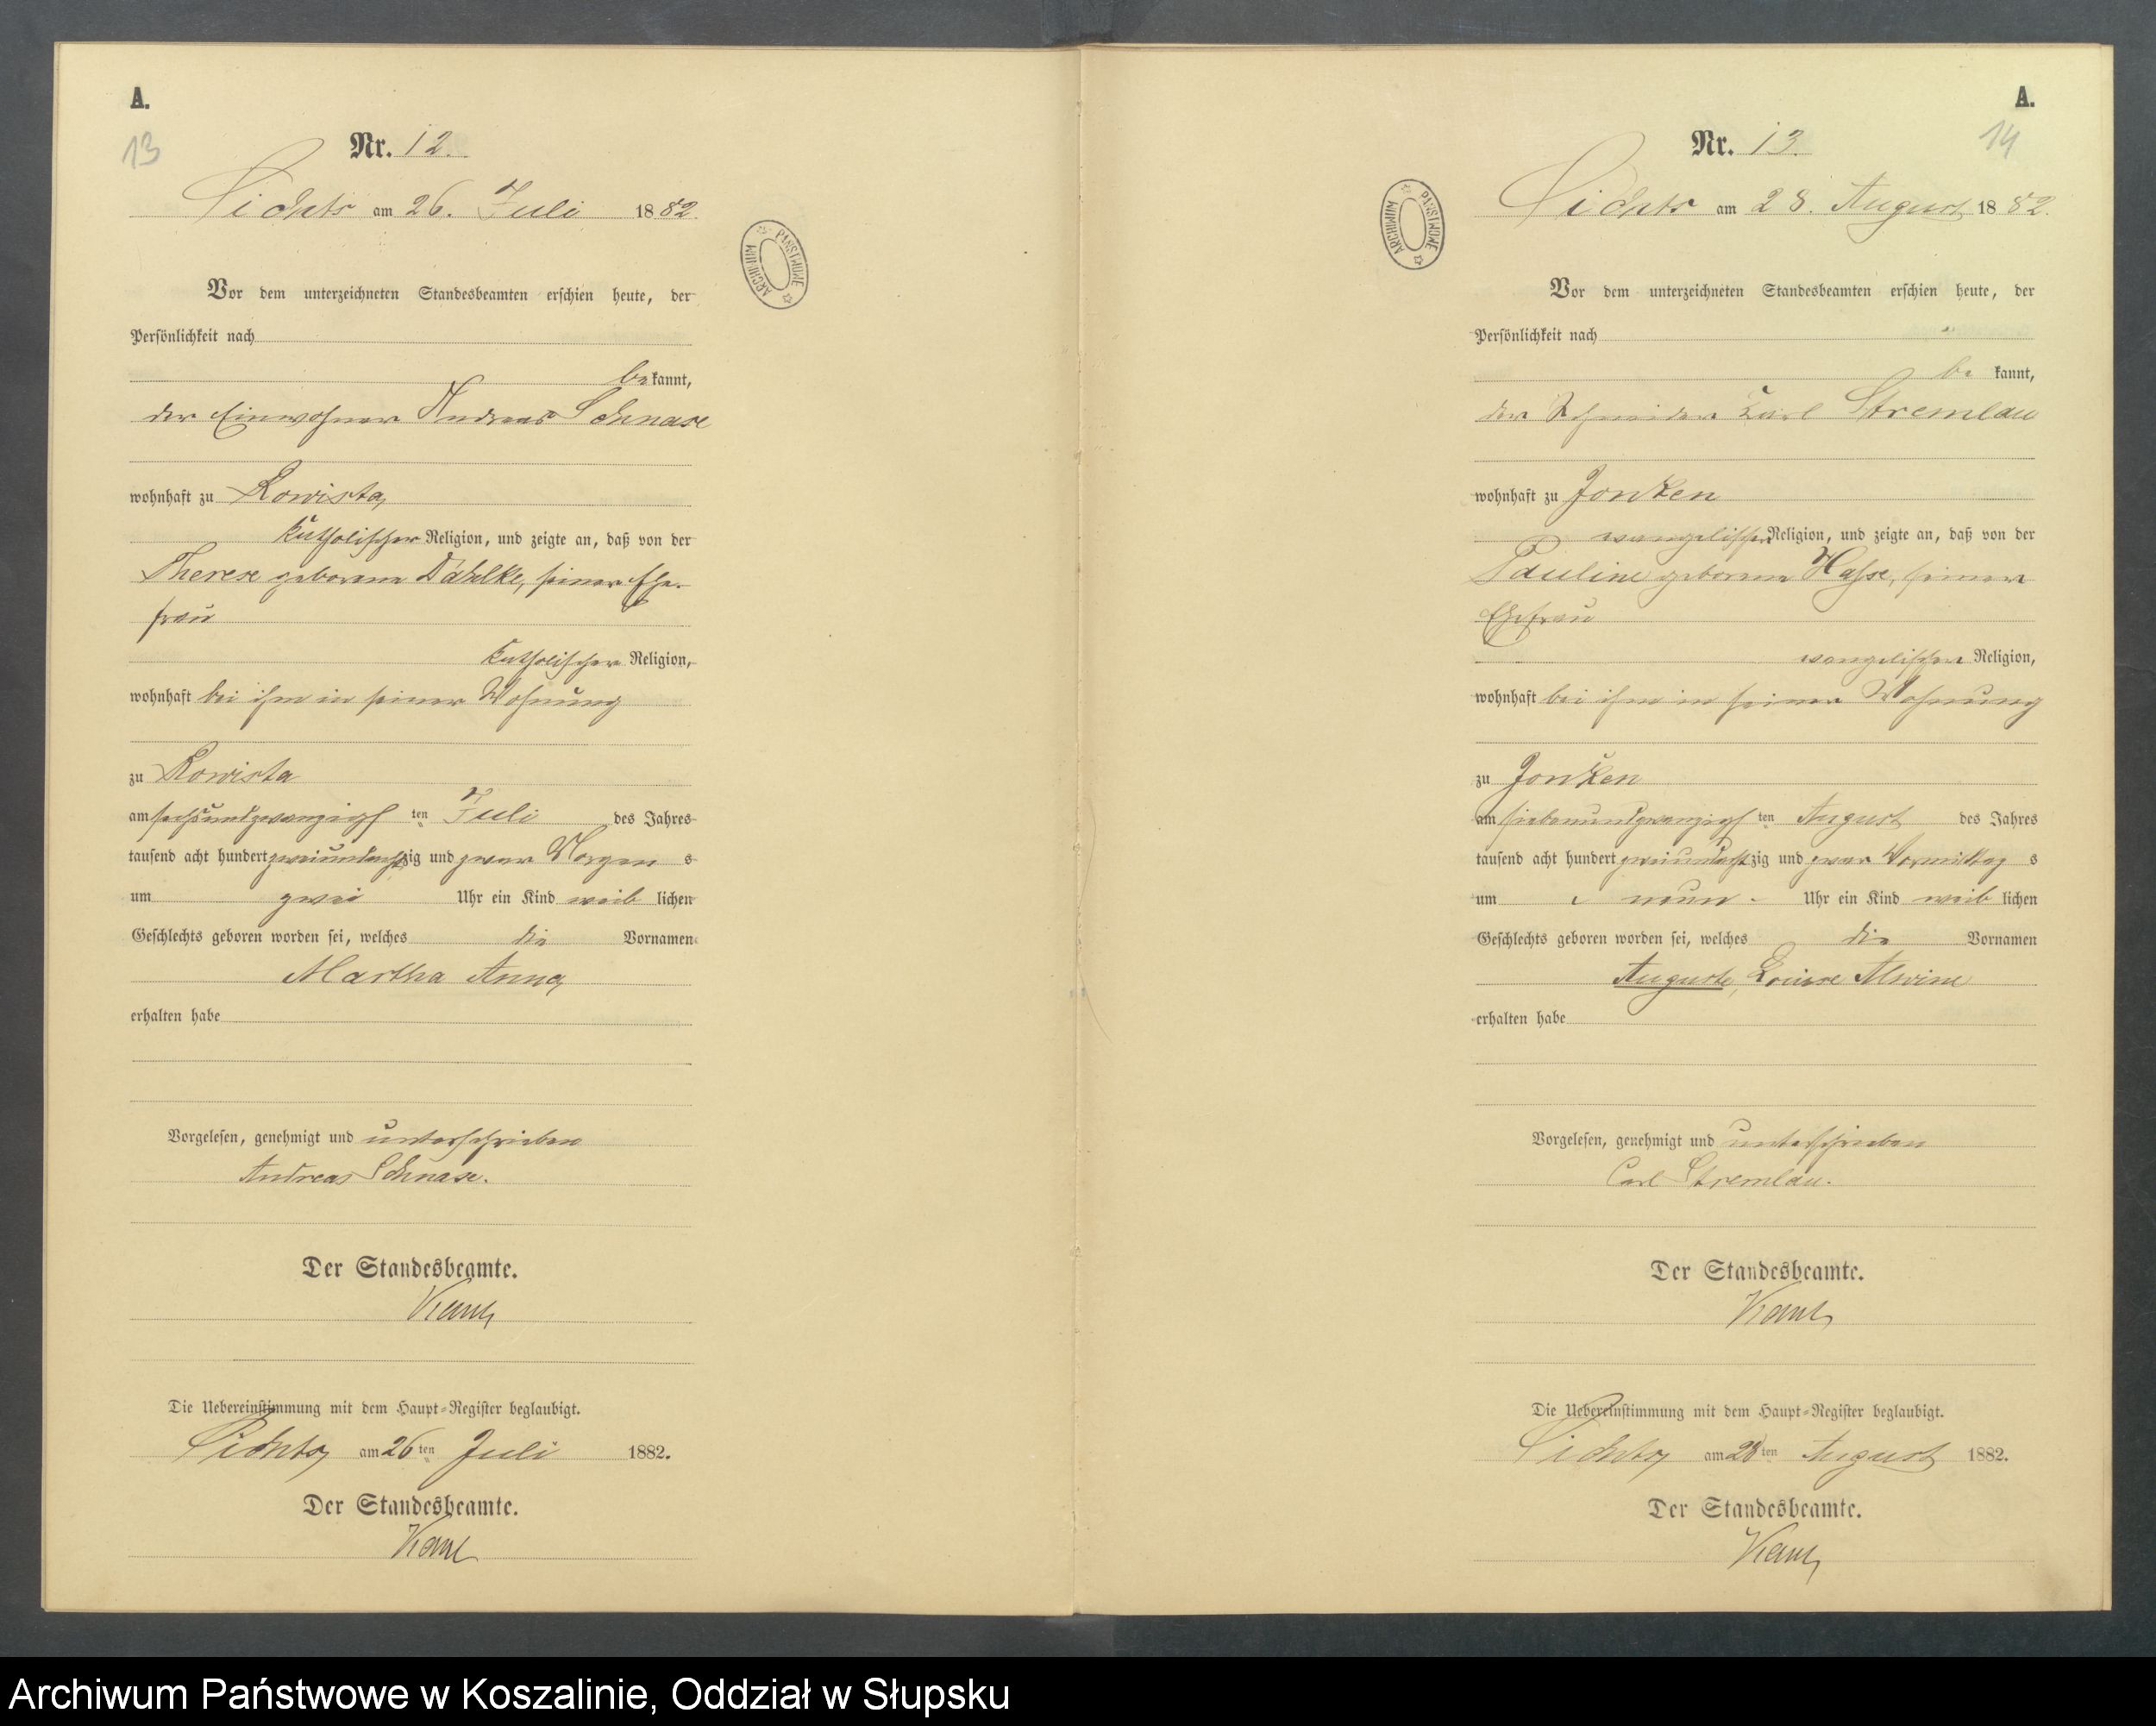 A.
13
Nr. 12.
Lichts am 26. Juli 1882
Vor dem unterzeichneten Standesbeamten erschien heute, der
Persönlichkeit nach
bekannt,
der Einwohner Andreas Schnase
wohnhaft zu Kowista,
katholischer Religion, und zeigte an, daß von der
Therese geborene Dahlke, seiner Ehe-
frau
katholischer Religion,
wohnhaft bei ihm in seiner Wohnung
zu Kowista
am sechsundzwanzigsten Juli des Jahres
tausend acht hundert zweiundachtzig und zwar Morgens
um zwei Uhr ein Kind weiblichen
Geschlechts geboren worden sei, welches die Vornamen
Martha Anna,
erhalten habe
Vorgelesen, genehmigt und unterschrieben
Andreas Schnase.
Der Standesbeamte.
Die Uebereinstimmung mit dem Haupt-Register beglaubigt.
am 26ten Juli 1882.
Der Standesbeamte.
ARCHIWUM PAŃSTWOWE
A.
14
Nr. 13.
am 28. August 1882.
ARCHIWUM PAŃSTWOWE
Vor dem unterzeichneten Standesbeamten erschien heute, der
Persönlichkeit nach
bekannt,
der Schneider Karl Stremlau
wohnhaft zu Jonken
evangelischer Religion, und zeigte an, daß von der
Pauline geborene Hasse, seiner
Ehefrau
evangelischer Religion,
wohnhaft bei ihm in seiner Wohnung
zu Jonken
am siebenundzwanzigsten August des Jahres
tausend acht hundert zweiundachtzig und zwar Vormittags
um neun Uhr ein Kind weiblichen
Geschlechts geboren worden sei, welches die Vornamen
Auguste, Louise Alwine
erhalten habe
Vorgelesen, genehmigt und unterschrieben
Carl Stremlau.
Der Standesbeamte.
Die Uebereinstimmung mit dem Haupt-Register beglaubigt.
am 28ten August 1882.
Der Standesbeamte.
Archiwum Państwowe w Koszalinie, Oddział w Słupsku